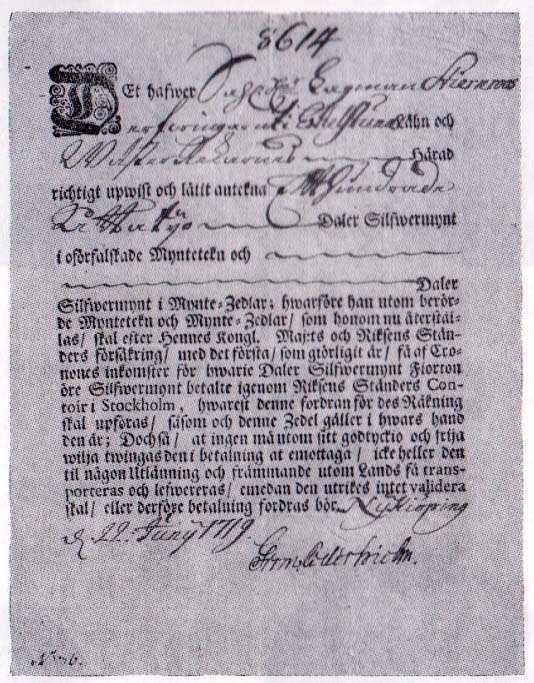 8614
Et hafwer Sahl. H. Lagman Stiernros
i Eskilstuna Lähn och
Häradt
richtigt upwist och lätit antekna Ett Hundrade
Ottatyo Daler Silfwermynt
i oförfalskade Myntetekn och
Daler
Silfwermynt i Mynte-Zedlar; hwarföre han utom berör-
de Myntetekn och Mynte-Zedlar/ som honom nu återstäl-
las/ skal efter Hennes Kongl. Maj:ts och Riksens Stän-
ders försäkring/ med det första/ som giörligit är/ få af Cro-
nones inkomster för hwarje Daler Silfwermynt Fiorton
öre Silfwermynt betalte igenom Riksens Ständers Con-
toir i Stockholm, hwarest denne fordran för des Räkning
skal upföras/ såsom och denne Zedel gäller i hwars hand
den är; Dochså/ at ingen må utom sitt godtyckio och frija
wilja twingas den i betalning at emottaga/ icke heller den
til någon Utlänning och främmande utom Lands få trans-
porteras och lefwereras/ emedan den utrikes intet validera
skal/ eller derföre betalning fordras bör. Nyköping
d. 22. Junij 1719.
Cederholm.